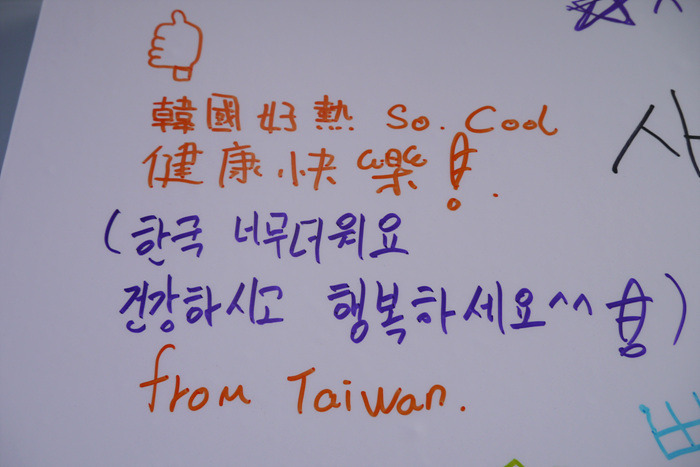 韓國好熱 So. Cool
健康.快樂!.
(한국 너무더워요
건강하시고 행복하세요^^ 흠)
from Taiwan.
사